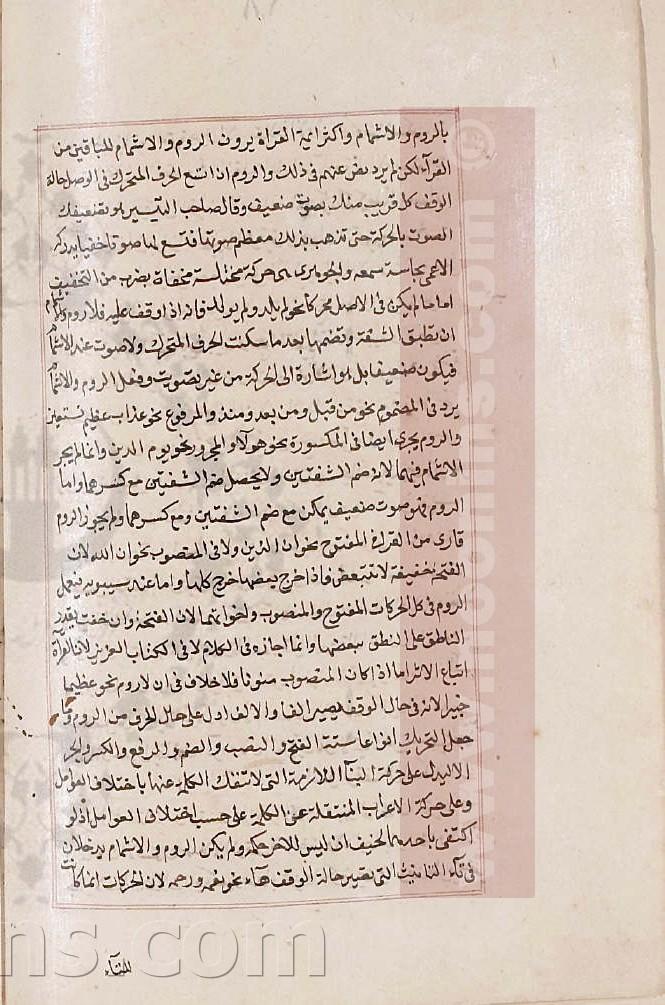 بالروم والاشمام واكثر ائمة القراة يرون الروم والاشمام للباقين من
القرآء لكن لم يرد نص عنهم فى ذلك والروم ان اتبع الحرف المتحرك فى الوصل حالة
الوقف كل قريب منك بصوت ضعيف وقال صاحب التيسير هو تضعيفك
الصوت بالحركة حتى تذهب بذلك معظم صوتها فتسمع لها صوتا خفيا يدركه
الاعمى بحاسة سمعه والجوهرى حركة مختلسة مخفاة بضرب من التخفيف
اما ما لم يكن فى الاصل محركا نحو لم يلد ولم يولد فانه اذا وقف عليه فلا روم
ان تطبق الشفة وتضمها بعد ما سكنت الحرف المتحرك ولا صوت عند الاشمام
فيكون ضعيفا بل هو اشارة الى الحركة من غير تصويت وفعل الروم والاشمام
يرد فى المضموم نحو من قبل ومن بعد ومنذ والمرفوع نحو عذاب عظيم نستعين
والروم يجرى ايضا فى المكسورة نحو هولآء والمجرور نحو يوم الدين وانما لم يجر
الاشمام فيهما لانه ضم الشفتين ولا يحصل ضم الشفتين مع كسرهما واما
الروم فهو صوت ضعيف يمكن مع ضم الشفتين ومع كسرهما ولم يجوز الروم
قارى من القرآء فى المفتوح نحو ان الذين ولا فى المنصوب نحو ان الله لان
الفتحة خفيفة لا تتبعض فاذا خرج بعضها خرج كلها واما عند سيبويه فيعمل
الروم فى كل الحركات المفتوح والمنصوب واخواتهما لان الفتحة وان خفت يقدر
الناطق على النطق ببعضها وانما اجازه فى الكلام لا فى الكتاب العزيز لان القرآة
اتباع الاثر اما اذا كان المنصوب منونا فلا خلاف فى ان لا روم نحو عظيما
خبيرا لانه فى حال الوقف يصير الفا والالف ادل على حال الحرف من الروم
جعل التحريك انواعا ستة الفتح والنصب والضم والرفع والكسر والجر
الا ليدل على حركة البنآء اللازمة التى لا تنفك الكلمة عنها باختلاف العوامل
وعلى حركة الاعراب المنتقلة عن الكلمة على حسب اختلاف العوامل اذ لو
اكتفى باحدهما لخيف ان ليس للاخر حكمه ولم يكن الروم والاشمام يدخلان
فى تآء التانيث التى تصير حالة الوقف هآء نحو نعمة ورحمة لان الحركات انما كانت
للتآء